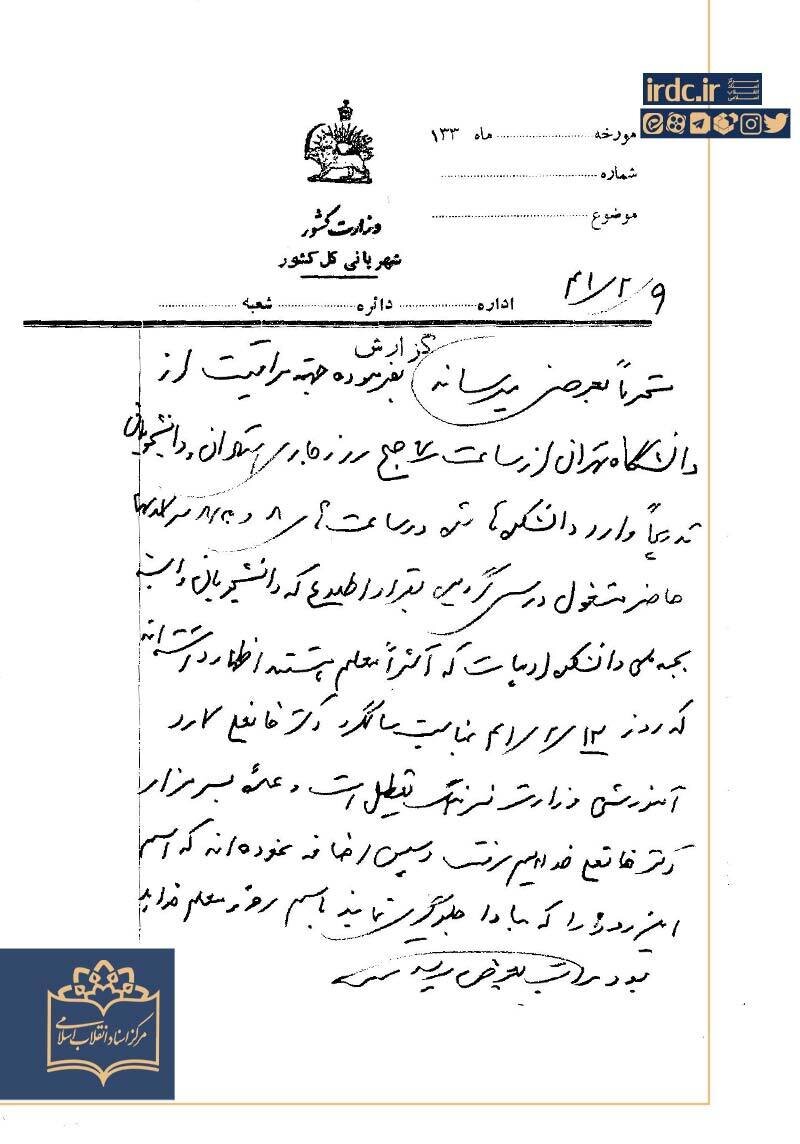 irdc.ir
مرکز اسناد انقلاب اسلامی
مورخه ........ ماه ۱۳۳
شماره ........
موضوع ........
وزارت کشور
شهربانی کل کشور
اداره ........ دائره ........ شعبه ........
۴۱/۲/۹
گزارش
محترماً بعرض میرساند بفرموده جهة مراقبت از
دانشگاه تهران از ساعت ۷ صبح روز جاری استادان و دانشجویان
تدریجاً وارد دانشکده ها شده در ساعت های ۸ و در کلاسها
حاضر مشغول درس گردیدند بقرار اطلاع که دانشجویان وابسته
بجبهه ملی دانشکده ادبیات که اکثراً معلم هستند اظهار داشته اند
که روز ۴۱/۲/۱۲ بمناسبت سالگرد دکتر خانعلی کادر
آموزشی وزارت فرهنگ تعطیل است و عده بسر مزار
دکتر خانعلی خواهیم رفت و سپس اضافه نموده اند که اسم
این روز را که مبادا جلوگیری نمایند باسم روز معلم خواهد
بود مراتب بعرض رسید
مرکز اسناد انقلاب اسلامی